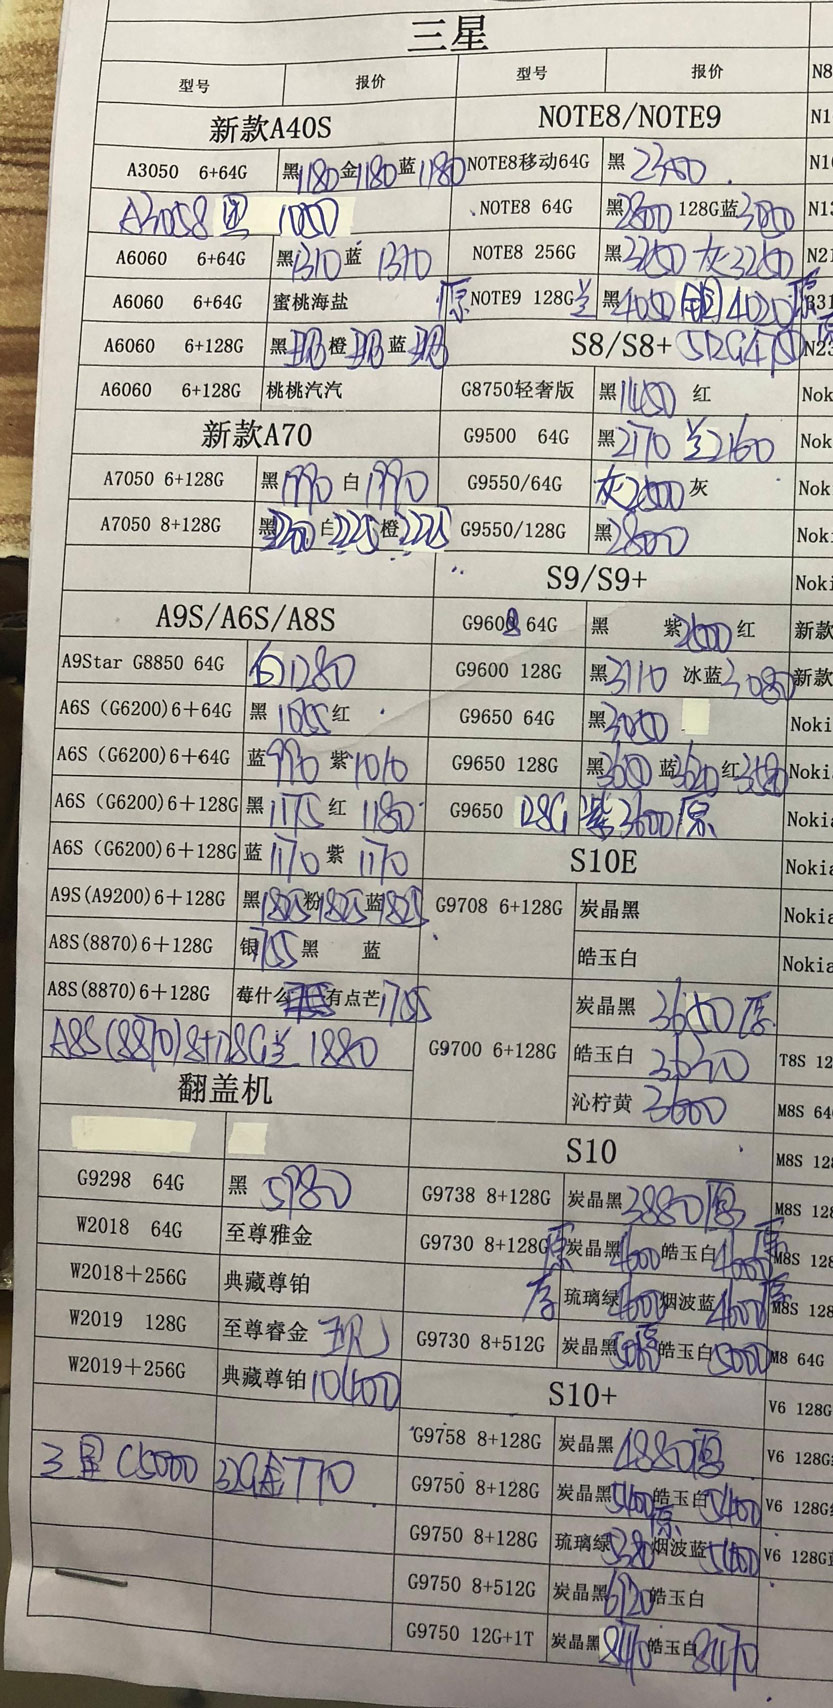 三星
型号 报价 型号 报价
新款A40S NOTE8/NOTE9
A3050 6+64G 黑1180金1180蓝1180 NOTE8移动64G 黑2350
A3058黑 1050 NOTE8 64G 黑2800 128G蓝3050
A6060 6+64G 黑1310蓝1370 NOTE8 256G 黑3250灰3250
A6060 6+64G 蜜桃海盐 原NOTE9 128G兰 黑4050 4020原
A6060 6+128G 黑现橙现蓝现 S8/S8+ 512G
A6060 6+128G 桃桃汽汽 G8750轻奢版 黑1450 红
新款A70 G9500 64G 黑2170兰2160
A7050 6+128G 黑1990白1990 G9550/64G 灰2500灰
A7050 8+128G 黑 白2225橙2225 G9550/128G 黑2800
S9/S9+
A9S/A6S/A8S G9608 64G 黑 紫2600红
A9Star G8850 64G 白1280 G9600 128G 黑3110 冰蓝3080
A6S（G6200)6+64G 黑1055红 G9650 64G 黑3050
A6S（G6200)6+64G 蓝990紫1010 G9650 128G 黑3600蓝3620红3580
A6S（G6200)6+128G 黑1175红1180 G9650 128G 紫3600原
A6S（G6200)6+128G 蓝1170紫1170 S10E
A9S(A9200)6+128G 黑1825粉1825蓝1825 G9708 6+128G 炭晶黑
A8S(8870)6+128G 银1755黑 蓝 皓玉白
A8S(8870)6+128G 莓什么 有点芒1755 G9700 6+128G 炭晶黑3650原
A8S(8870)8+128G兰1880 皓玉白
翻盖机 沁柠黄3600
S10
G9298 64G 黑5980 G9738 8+128G 炭晶黑3880原
W2018 64G 至尊雅金 G9730 8+128G 原炭晶黑4600皓玉白4600原
W2018+256G 典藏尊铂 原琉璃绿4600烟波蓝4600原
W2019 128G 至尊睿金 现 G9730 8+512G 炭晶黑 原皓玉白5000
W2019+256G 典藏尊铂10400 S10+
G9758 8+128G 炭晶黑4880原
三星C5000 32G金770 G9750 8+128G 炭晶黑5400皓玉白5400
G9750 8+128G 琉璃绿5380原烟波蓝5400
G9750 8+512G 炭晶黑6920皓玉白
G9750 12G+1T 炭晶黑8470皓玉白8470
N8
N1
N1
N13
N21
N23
Nok
Nok
Nok
Noki
Noki
新款
新款
Noki
Nokia
Nokia
Nokia
Nokia
Nokia
T8S 12
M8S 64
M8S 128
M8S 128
M8S 128
M8S 128
M8 64G
V6 128G
V6 128G
V6 128G
V6 128G